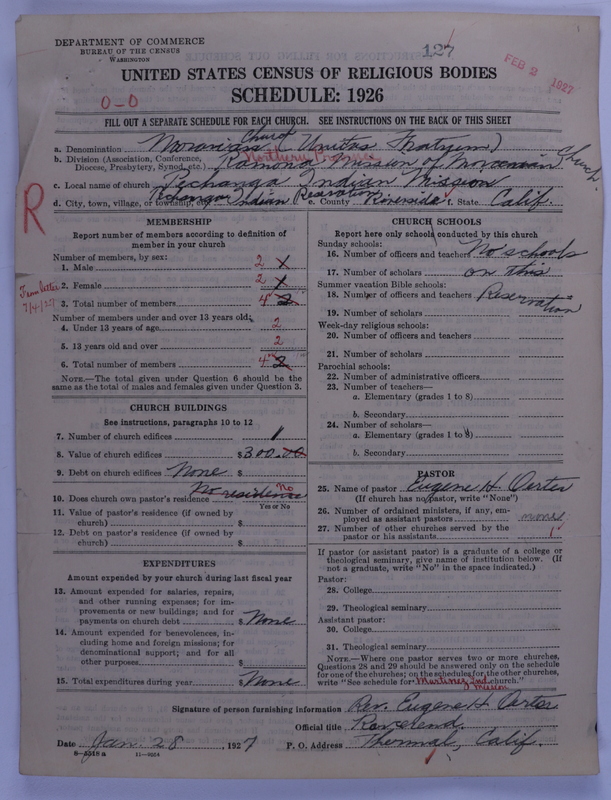 DEPARTMENT OF COMMERCE
BUREAU OF THE CENSUS
WASHINGTON
127
FEB 2 1927
UNITED STATES CENSUS OF RELIGIOUS BODIES
SCHEDULE: 1926
0-0
FILL OUT A SEPARATE SCHEDULE FOR EACH CHURCH. SEE INSTRUCTIONS ON THE BACK OF THIS SHEET
a. Denomination Moravian Church (Unitas Fratrum)
Northern Province
b. Division (Association, Conference, Diocese, Presbytery, Synod, etc.) Ramona Mission of Moravian Church.
c. Local name of church Pechanga Indian Mission
d. City, town, village, or township, etc. Pechanga Indian Reservation e. County Riverside f. State Calif.
R
From letter
7/4/27
MEMBERSHIP
Report number of members according to definition of member in your church
Number of members, by sex:
1. Male 2
2. Female 2
3. Total number of members 4 2
Number of members under and over 13 years old:
4. Under 13 years of age 2
5. 13 years old and over 2
6. Total number of members 4 2
NOTE.—The total given under Question 6 should be the same as the total of males and females given under Question 3.
CHURCH BUILDINGS
See instructions, paragraphs 10 to 12
7. Number of church edifices 1
8. Value of church edifices $300.00
9. Debt on church edifices None $
10. Does church own pastor's residence No residence No
Yes or No
11. Value of pastor's residence (if owned by church) $
12. Debt on pastor's residence (if owned by church) $
EXPENDITURES
Amount expended by your church during last fiscal year
13. Amount expended for salaries, repairs, and other running expenses; for improvements or new buildings; and for payments on church debt $ None
14. Amount expended for benevolences, including home and foreign missions; for denominational support; and for all other purposes $
15. Total expenditures during year $ None
CHURCH SCHOOLS
Report here only schools conducted by this church
Sunday schools:
16. Number of officers and teachers No schools
17. Number of scholars on this
Summer vacation Bible schools:
18. Number of officers and teachers Reservation
19. Number of scholars
Week-day religious schools:
20. Number of officers and teachers
21. Number of scholars
Parochial schools:
22. Number of administrative officers
23. Number of teachers—
a. Elementary (grades 1 to 8)
b. Secondary
24. Number of scholars—
a. Elementary (grades 1 to 8)
b. Secondary
PASTOR
25. Name of pastor Eugene H Oerter
(If church has no pastor, write "None")
26. Number of ordained ministers, if any, employed as assistant pastors none
27. Number of other churches served by the pastor or his assistants 1
If pastor (or assistant pastor) is a graduate of a college or theological seminary, give name of institution below. (If not a graduate, write "No" in the space indicated.)
Pastor:
28. College
29. Theological seminary
Assistant pastor:
30. College
31. Theological seminary
NOTE.—Where one pastor serves two or more churches, Questions 28 and 29 should be answered only on the schedule for one of the churches; on the schedules for the other churches, write "See schedule for Martinez Ind. Mission church."
Signature of person furnishing information Rev. Eugene H Oerter
Official title Reverend.
Date Jan. 28, 1927 P. O. Address Thermal, Calif.
8—5518 a 11—9264